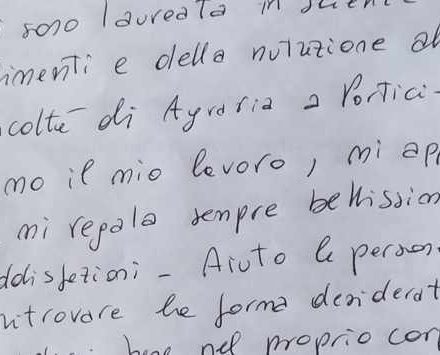 sono laureata in
imenti e della nutrizione al
coltà di Agraria a Portici-
mo il mio lavoro, mi app
mi regala sempre bellissim
ddisfazioni - Aiuto le person
ritrovare la forma desiderat
bene nel proprio corp